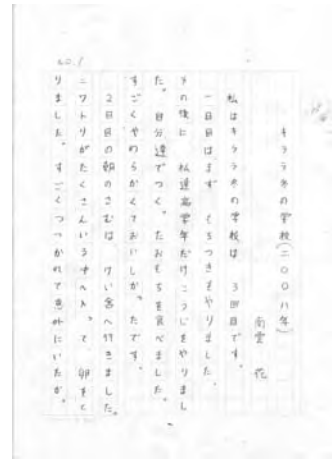 NO.1
キララ冬の学校(二〇〇八年)
南雲 花
私はキララ冬の学校は、3回目です。
一日目はまず、もちつきをやりました。
その後に、私達高学年だけこうじをやりまし
た。自分達でつくったおもちを食べました。
すごくやわらかくておいしかったです。
2日目の朝のさむい、けい舎へ行きました。
ニワトリがたくさんいる中へ入って、卵をと
りました。すごくつつかれて意外にいたか。